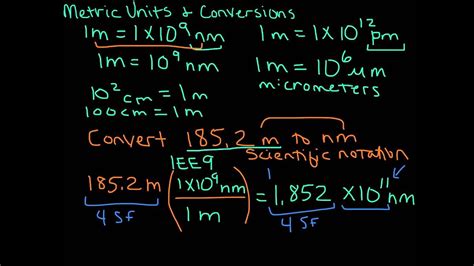 Metric Units & Conversions
1m = 1X10⁹ nm
1m = 1X10¹² pm
1m = 10⁹ nm
1m = 10⁶ μm
micrometers
10² cm = 1m
100cm = 1m
Convert 185.2 m to nm
Scientific notation
1EE9
185.2 m (1X10⁹ nm / 1m) = 1.852 X10¹¹ nm
4 SF
4 SF